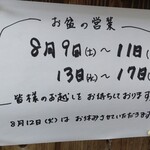 お盆の営業
8月9日(土)〜11日(
13日(水)〜17日(
皆様のお越しをお待ちしております
8月12日(火)は お休みさせていただきます